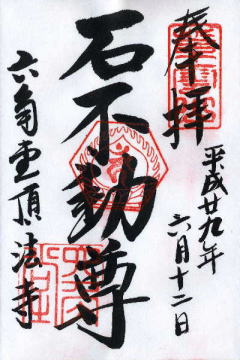 奉拝
平成廿九年
六月十二日
石不動尊
六角堂頂法寺